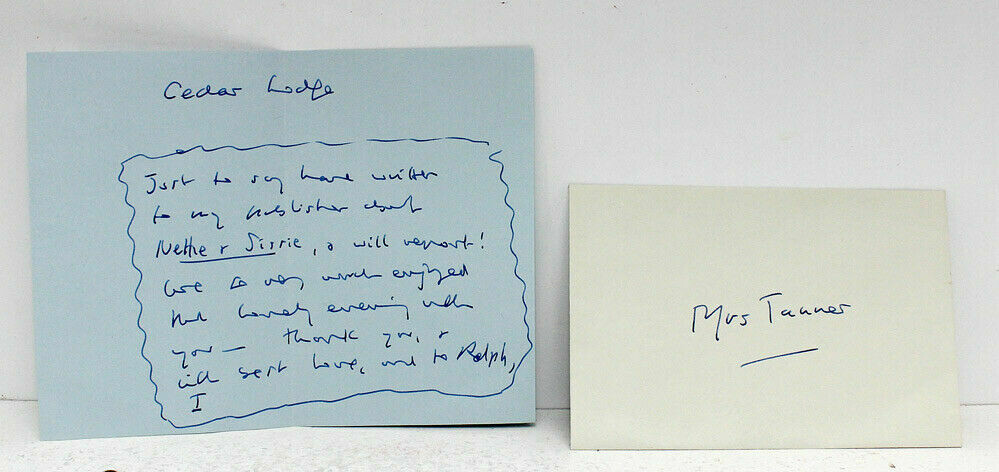 Cedar Lodge
Just to say have written
to my publisher about
Nettie & Sissie, & will report!
We so very much enjoyed
that lovely evening with
you — thank you, &
with best love, and to Ralph,
I
Mrs Tanner